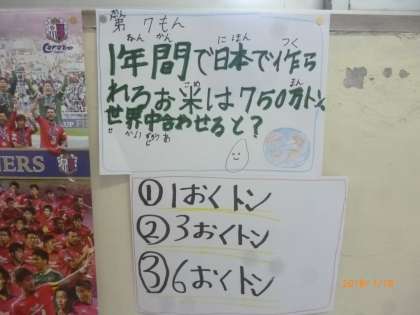 第7もん
1年間で日本で作ら
れるお米は750万トン
世界中合わせると?
①1おくトン
②3おくトン
③6おくトン
Cerezo
NERS